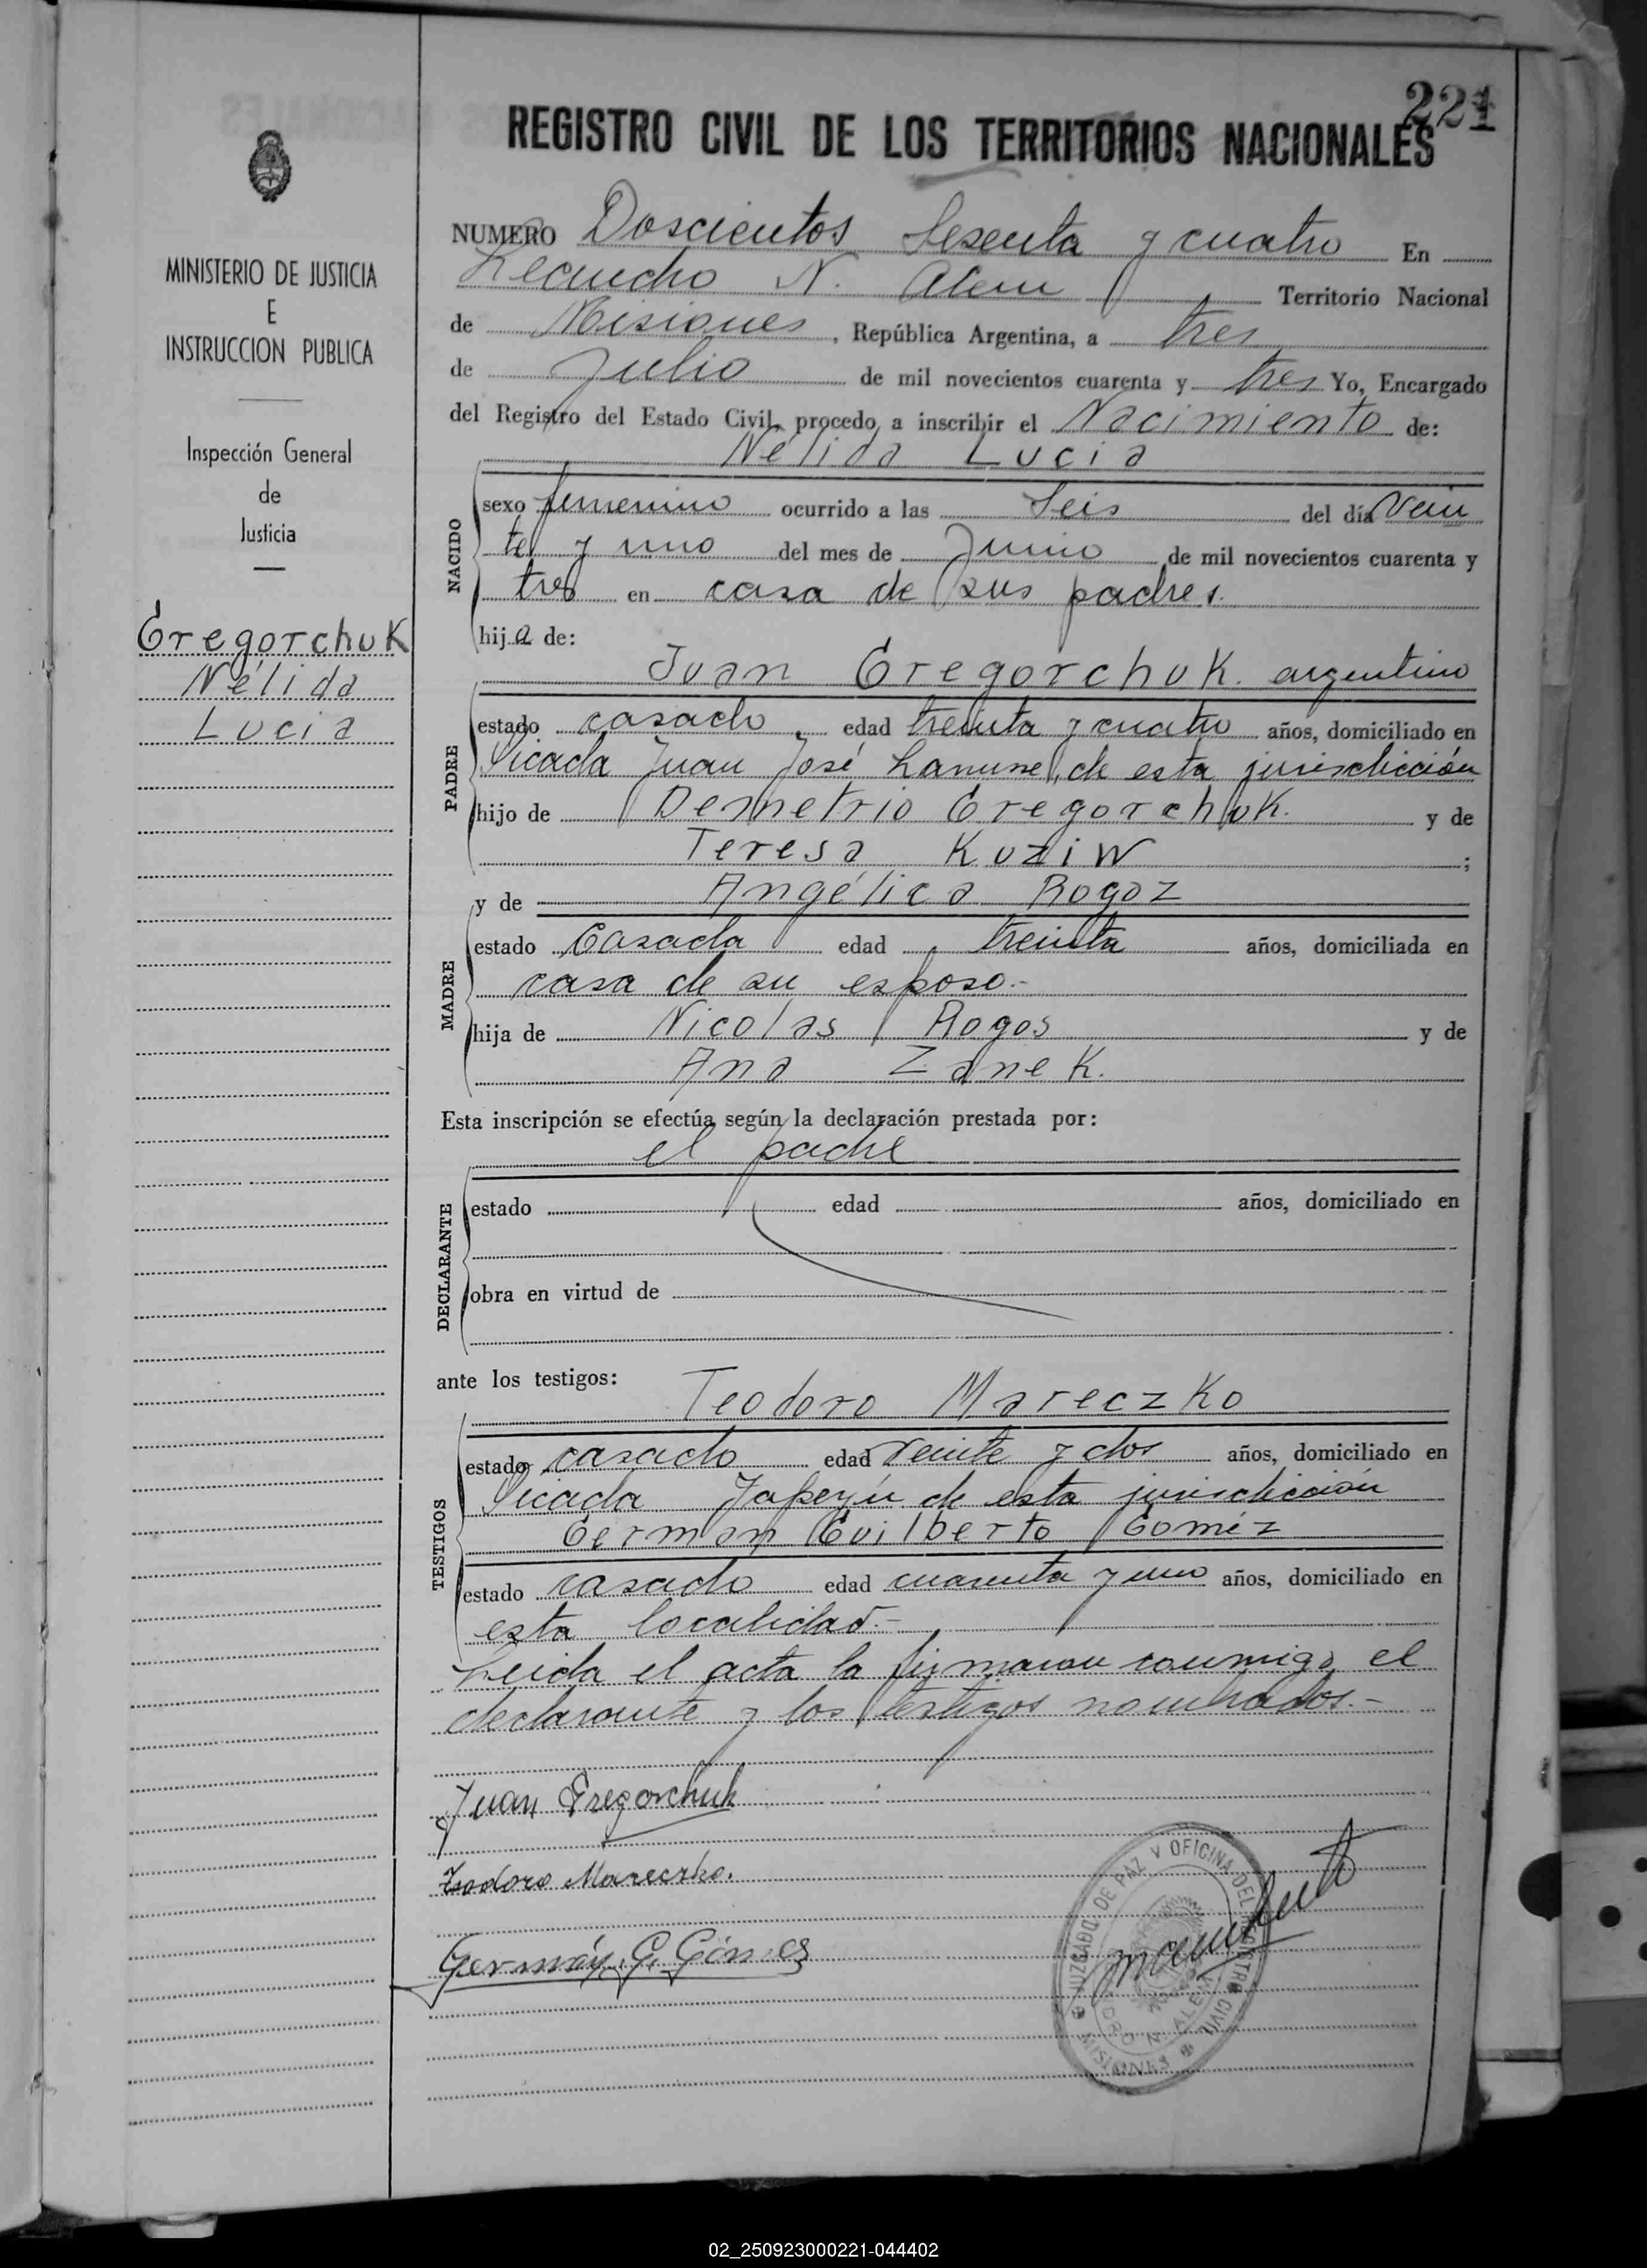 221
REGISTRO CIVIL DE LOS TERRITORIOS NACIONALES
MINISTERIO DE JUSTICIA
E
INSTRUCCION PUBLICA
Inspección General
de
Justicia
Gregorchuk
Nélida
Lucia
NUMERO Doscientos Sesenta y cuatro En
Leandro N. Alem Territorio Nacional
de Misiones, República Argentina, a tres
de Julio de mil novecientos cuarenta y tres Yo, Encargado
del Registro del Estado Civil, procedo a inscribir el Nacimiento de:
Nélida Lucia
NACIDO
sexo femenino ocurrido a las Seis del día Vein
te y uno del mes de Junio de mil novecientos cuarenta y
tres en casa de sus padres.
hija de:
Juan Gregorchuk. argentino
PADRE
estado casado, edad treinta y cuatro años, domiciliado en
Picada Juan José Lanusse, de esta jurisdicción
hijo de Demetrio Gregorchuk. y de
Teresa Kuziw ;
y de Angélica Rogoz
MADRE
estado Casada edad treinta años, domiciliada en
casa de su esposo.-
hija de Nicolas Rogos y de
Ana Zanek.
Esta inscripción se efectúa según la declaración prestada por:
el padre
DECLARANTE
estado edad años, domiciliado en
obra en virtud de
ante los testigos:
Teodoro Mareczko
TESTIGOS
estado casado edad Veinte y dos años, domiciliado en
Picada Yapeyú de esta jurisdicción
German Guilberto Gomez
estado casado edad cuarenta y uno años, domiciliado en
esta localidad.-
Leida el acta la firmaron conmigo el
declarante y los testigos nombrados.-
Juan Gregorchuk
Teodoro Mareczko.
Germán G. Gómez
JUZGADO DE PAZ Y OFICINA DEL REGISTRO CIVIL
N. ALEM
MISIONES
02_250923000221-044402